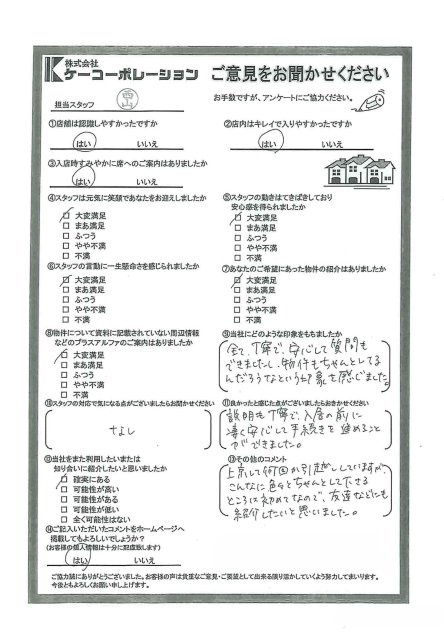 株式会社
ケーコーポレーション ご意見をお聞かせください
担当スタッフ
お手数ですが、アンケートにご協力ください。
①店舗は認識しやすかったですか
はい いいえ
②店内はキレイで入りやすかったですか
はい いいえ
③入店時すみやかに席へのご案内はありましたか
はい いいえ
④スタッフは元気に笑顔であなたをお迎えしましたか
□ 大変満足
□ まあ満足
□ ふつう
□ やや不満
□ 不満
⑤スタッフの動きはてきぱきしており
安心感を得られましたか
□ 大変満足
□ まあ満足
□ ふつう
□ やや不満
□ 不満
⑥スタッフの言動に一生懸命さを感じられましたか
□ 大変満足
□ まあ満足
□ ふつう
□ やや不満
□ 不満
⑦あなたのご希望にあった物件の紹介はありましたか
□ 大変満足
□ まあ満足
□ ふつう
□ やや不満
□ 不満
⑧物件について資料に記載されていない周辺情報
などのプラスアルファのご案内はありましたか
□ 大変満足
□ まあ満足
□ ふつう
□ やや不満
□ 不満
⑨当社にどのような印象をもちましたか
全て、丁寧で、安心して質問も
できましたし、物件もちゃんとしてる
んだろうなという印象を感じました。
⑩スタッフの対応で気になる点がございましたらお聞かせください
なし
⑪良かったと感じた点がございましたらおきかせください
説明も丁寧で、入居の前に
凄く安心して手続きを進めること
ができました。
⑫当社をまた利用したいまたは
知り合いに紹介したいと思いましたか
□ 確実にある
□ 可能性が高い
□ 可能性がある
□ 可能性が低い
□ 全く可能性はない
⑬その他のコメント
上京して何回か引越ししていますが、
こんなに色々とちゃんとして下さる
ところは初めてなので、友達などにも
紹介したいと思いました。
⑭ご記入いただいたコメントをホームページへ
掲載してもよろしいでしょうか?
(お客様の個人情報は十分に配慮致します)
はい いいえ
ご協力誠にありがとうございました。お客様の声は貴重なご意見・ご要望として出来る限り活かしていくよう努力してまいります。
今後ともよろしくお願い申し上げます。